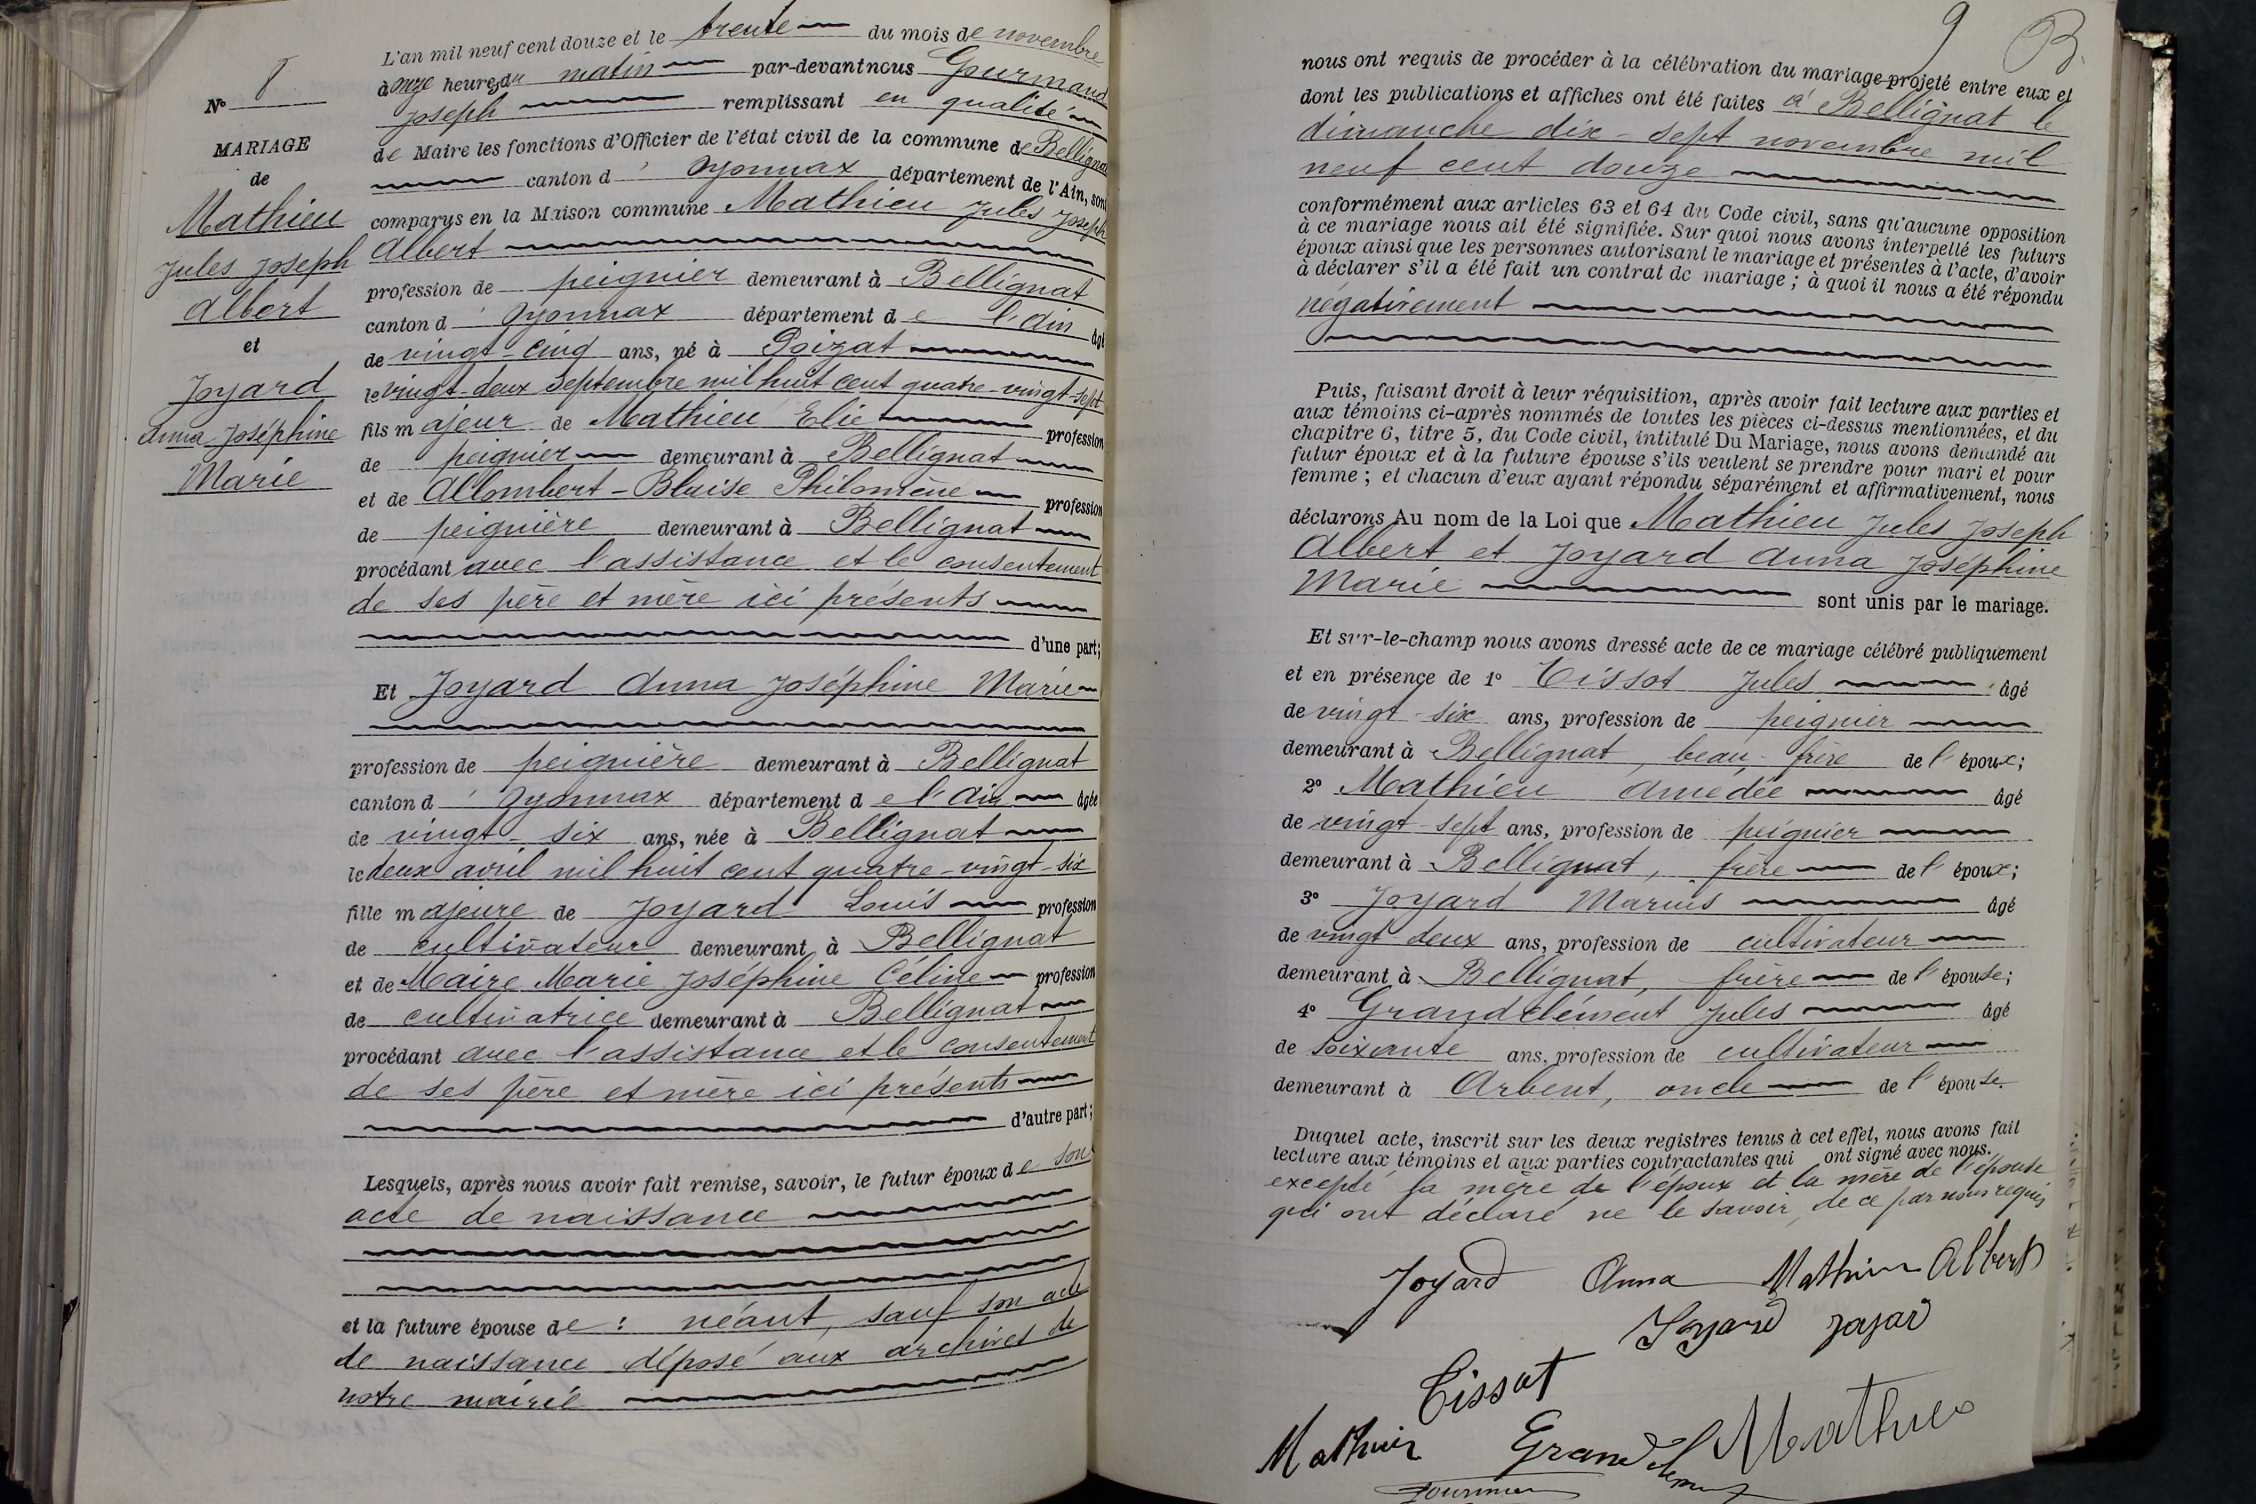 N° 8
MARIAGE
de
Mathieu
Jules Joseph
Albert
et
Joyard
Anna Joséphine
Marie
L'an mil neuf cent douze et le trente du mois de novembre
à onze heures du matin par-devant nous Gourmand
Joseph remplissant en qualité
de Maire les fonctions d'Officier de l'état civil de la commune de Bellignat
canton d'Oyonnax département de l'Ain, sont
comparus en la Maison commune Mathieu Jules Joseph
Albert
profession de peignier demeurant à Bellignat
canton d'Oyonnax département de l'Ain âgé
de vingt-cinq ans, né à Poizat
le vingt-deux Septembre mil huit cent quatre-vingt-sept
fils majeur de Mathieu Elie profession
de peignier demeurant à Bellignat
et de Allombert-Blaise Philomène profession
de peignière demeurant à Bellignat
procédant avec l'assistance et le consentement
de ses père et mère ici présents
d'une part;
Et Joyard Anna Joséphine Marie
profession de peignière demeurant à Bellignat
canton d'Oyonnax département de l'Ain âgée
de vingt-six ans, née à Bellignat
le deux avril mil huit cent quatre-vingt-six
fille majeure de Joyard Louis profession
de cultivateur demeurant à Bellignat
et de Maire Marie Joséphine Céline profession
de cultivatrice demeurant à Bellignat
procédant avec l'assistance et le consentement
de ses père et mère ici présents
d'autre part;
Lesquels, après nous avoir fait remise, savoir, le futur époux de son
acte de naissance
et la future épouse de : néant, sauf son acte
de naissance déposé aux archives de
notre mairie
9 B.
nous ont requis de procéder à la célébration du mariage projeté entre eux et
dont les publications et affiches ont été faites à Bellignat le
dimanche dix-sept novembre mil
neuf cent douze
conformément aux articles 63 et 64 du Code civil, sans qu'aucune opposition
à ce mariage nous ait été signifiée. Sur quoi nous avons interpellé les futurs
époux ainsi que les personnes autorisant le mariage et présentes à l'acte, d'avoir
à déclarer s'il a été fait un contrat de mariage ; à quoi il nous a été répondu
négativement
Puis, faisant droit à leur réquisition, après avoir fait lecture aux parties et
aux témoins ci-après nommés de toutes les pièces ci-dessus mentionnées, et du
chapitre 6, titre 5, du Code civil, intitulé Du Mariage, nous avons demandé au
futur époux et à la future épouse s'ils veulent se prendre pour mari et pour
femme ; et chacun d'eux ayant répondu séparément et affirmativement, nous
déclarons Au nom de la Loi que Mathieu Jules Joseph
Albert et Joyard Anna Joséphine
Marie sont unis par le mariage.
Et sur-le-champ nous avons dressé acte de ce mariage célébré publiquement
et en présence de 1° Tissot Jules âgé
de vingt-six ans, profession de peignier
demeurant à Bellignat, beau-frère de l'époux;
2° Mathieu Amédée âgé
de vingt-sept ans, profession de peignier
demeurant à Bellignat, frère de l'époux;
3° Joyard Marius âgé
de vingt deux ans, profession de cultivateur
demeurant à Bellignat, frère de l'épouse;
4° Grandclément Jules âgé
de soixante ans, profession de cultivateur
demeurant à Arbent, oncle de l'épouse.
Duquel acte, inscrit sur les deux registres tenus à cet effet, nous avons fait
lecture aux témoins et aux parties contractantes qui ont signé avec nous.
excepté la mère de l'époux et la mère de l'épouse
qui ont déclaré ne le savoir, de ce par nous requis
Joyard Anna Mathieu Albert
Joyard Joyard
Tissot
Mathieu Grandclément Mathieu